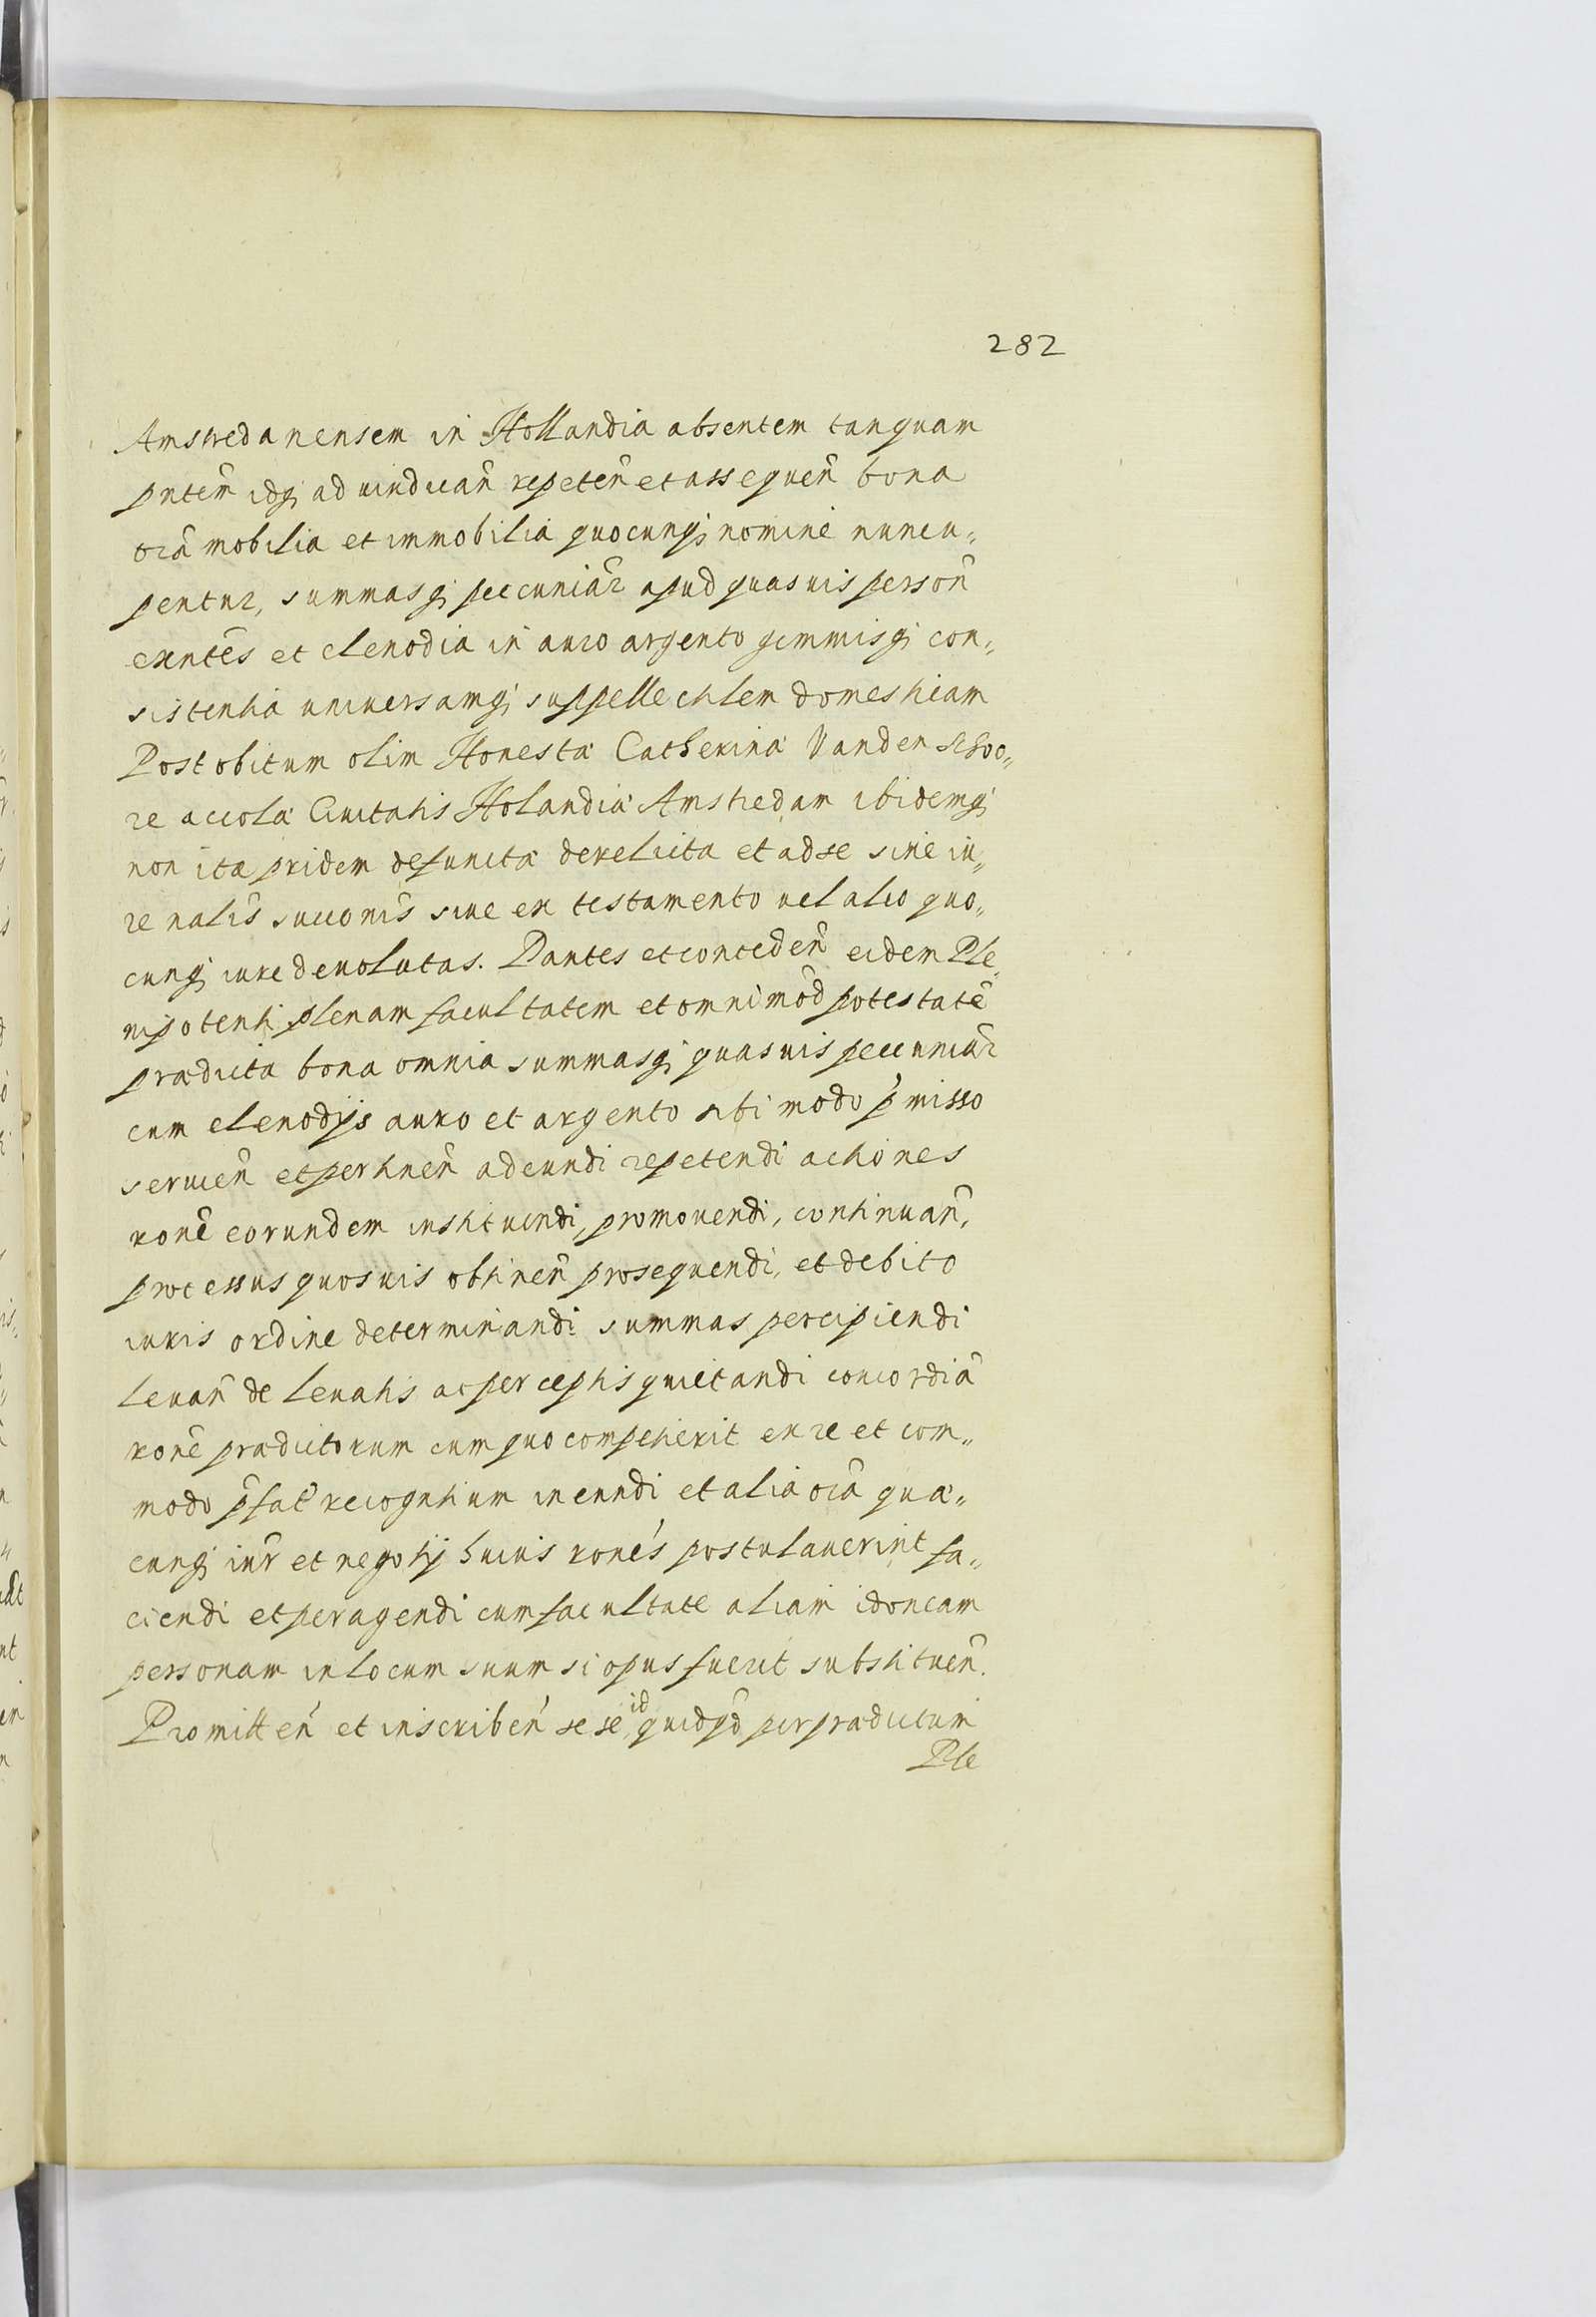 282
Amstredanensem in Hollandia absentem tanquam
pntem̃ idq; ad uindicañ repeteñ et assequeñ bona
oĩa mobilia et immobilia quocunq; nomine nuncu„
pentur, summasq; pecuniãr apud quasuis persoñ
exñtes et clenodia in auro argento gemmisq; con„
sistentia uniuersamq; suppellectilem domesticam
Post obitum olim Honestæ Catherinæ Vanden schoo„
re accolæ Ciuitatis Holandiæ Amstredam ibidemq;
non ita pridem defunctæ derelicta et ad se siue iu„
re nalĩs succonĩs siue ex testamento uel alio quo„
cunq; iure deuolutas. Dantes et concedeñ eidem Ple„
nipotenti plenam facultatem et omnimod̃ potestatẽ
prædicta bona omnia summasq; quasuis pecuniãr
cum clenodijs auro et argento sibi modo p̃misso
seruieñ et pertineñ adeundi repetendi actiones
ronẽ eorundem instituendi, promouendi, continuañ,
processus quosuis obtineñ prosequendi, et debito
iuris ordine determinandi summas percipiendi
leuañ de leuatis ac perceptis quietandi concordiã
ronẽ prædictorum cum quo competierit ex re et com„
modo p̃fat̃ recognitium ineundi et alia oĩa quæ„
cunq; iur̃ et negotij huius ronẽs postulauerint fa„
ciendi et peragendi cum facultate aliam idoneam
personam in locum suum si opus fuerit substitueñ.
Promitteñ et inscribeñ sese id quidqd̃ per prædictum
Ple